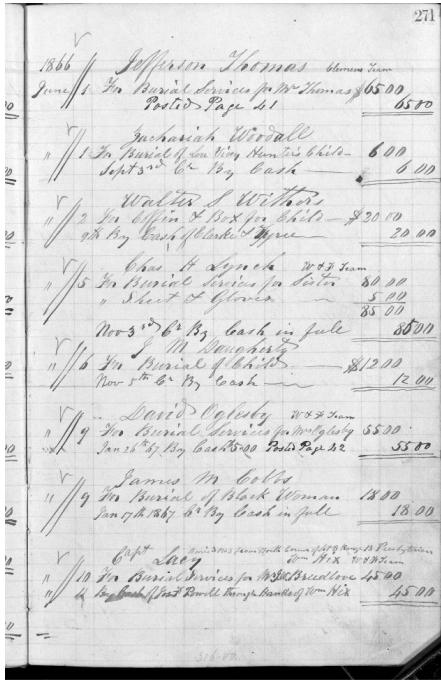 271
1866 Jefferson Thomas Clemens Team
June 1 For Burial Services for Mr Thomas $65 00
Posted Page 41 65 00
Zachariah Woodall
" 1 For Burial of Lou Hunter's Child 6 00
Sept 3rd Cr By Cash 6 00
Walter S Withers
" 2 For Coffin & Box for Child $20 00
9th By Cash of Clarke & 20 00
Chas H Lynch W & D Team
" 5 For Burial Services for Sister 80 00
" Sheet & Gloves 5 00
85 00
Nov 3rd Cr By Cash in full 85 00
J M Daugherty
" 6 For Burial of Child $12 00
Nov 5th Cr By Cash 12 00
David Oglesby W & D Team
" 9 For Burial Services for Mr Oglesby 55 00
Jan 26th 67 By Cash 5.00 Posted Page 42 55 00
James M Cobbs
" 9 For Burial of Black Woman 18 00
Jan 17th 1867 Cr By Cash in full 18 00
from North Corner of Range 13 Presbyterian
Capt Lacy Wm Hix W & D Team
" 10 For Burial Services for Breedlove 45 00
" By of Powell through Hands of Wm Hix 45 00